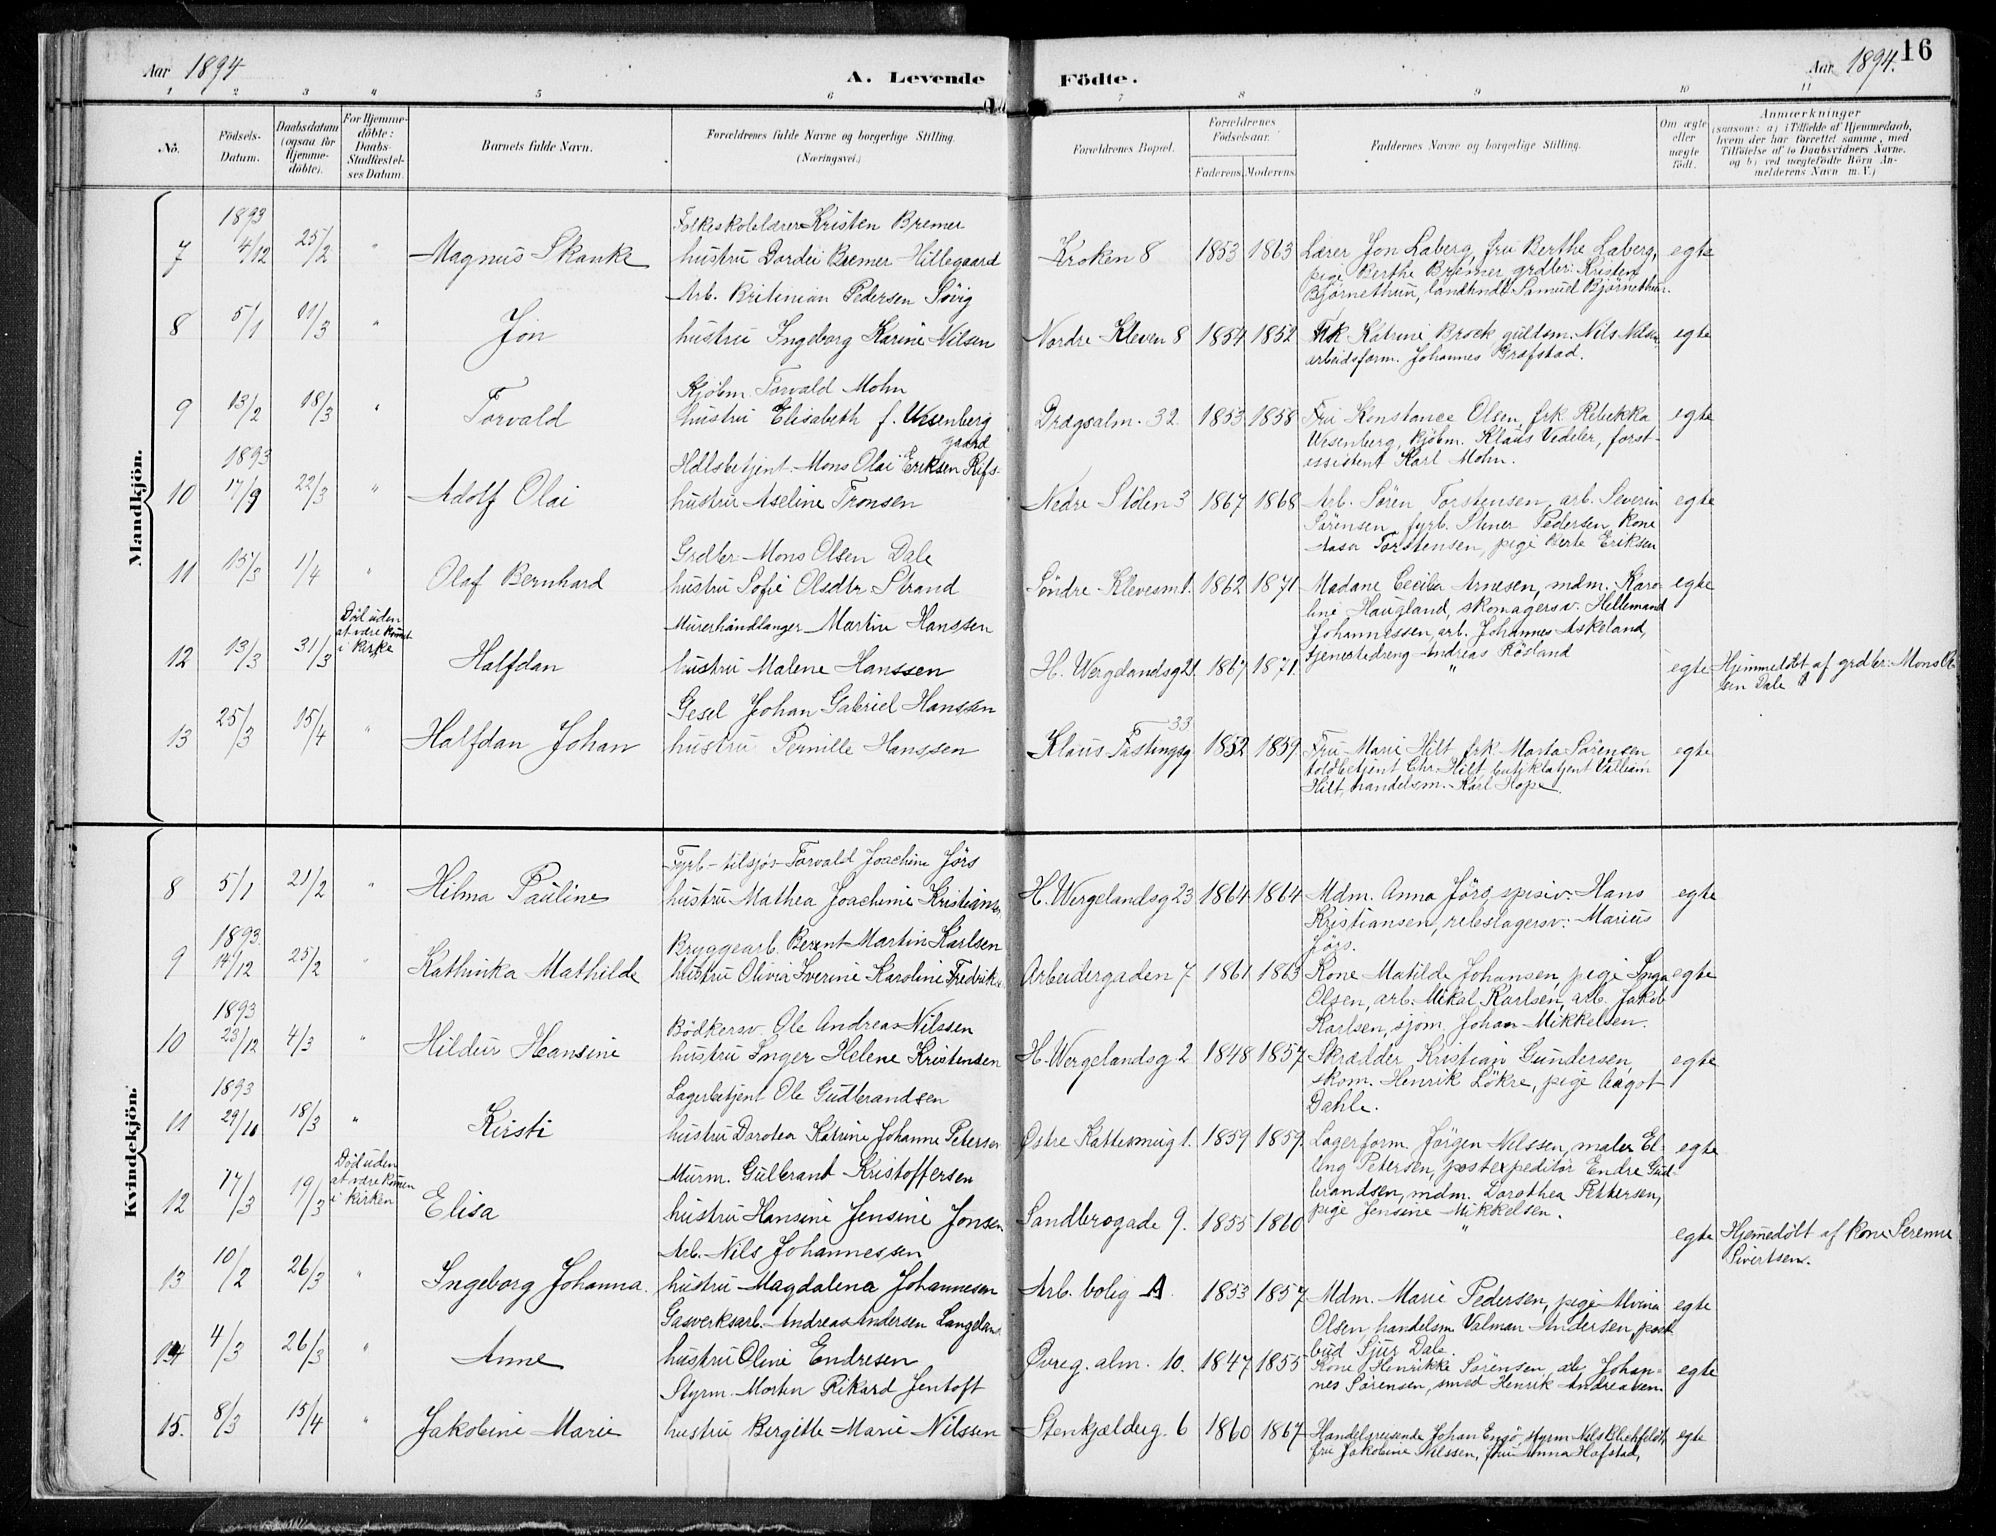 Aar 1894
A. Levende
Födte.
Aar 1894.
16
1 2 3 4 5 6 7 8 9 10 11
No.
Födsels-
Datum.
Daabsdatum
(ogsaa for
Hjemme-
döbte).
For Hjemme-
döbte:
Daabs-
Stadfæstel-
ses Datum.
Barnets fulde Navn.
Forældrenes fulde Navne og borgerlige Stilling.
(Næringsvei.)
Forældrenes Bopæl.
Forældrenes
Födselsaar.
Faderens. Moderens.
Faddernes Navne og borgerlige Stilling.
Om ægte
eller
uægte
födt.
Anmærkninger
(saasom: a) i Tilfælde af Hjemmedaab,
hvem der har forrettet samme, med
Tilföielse af to Daabsvidners Navne.
og b) ved uægtefödte Börn An-
melderens Navn m. V.)
Mandkjön.
1893
Folkeskolelærer Kristen Bremer
7 4/12 25/2 " Magnus Skanke hustru Dordei Bremer Hillegaard Kroken 8 1853 1863 Lærer Jon Laberg, fru Berthe Laberg, egte
pige Berthe Bremer grdbr. Kristen
Bjørnethun, landhndl. Samuel Bjørnethun.
Arb. Britinian Pedersen Søvig
8 5/1 11/3 " Jon hustru Ingeborg Karine Nilsen Nordre Kleven 8 1854 1852 Frk Katrine Brock guldsm. Nils Nilsen egte
arbeidsform. Johannes Grafstad.
Kjøbm. Torvald Mohn
9 13/2 18/3 " Torvald hustru Elisabeth f. Wesenberg Drægsalm. 32. 1853 1858 Fru Konstance Olsen, frk. Rebekka egte
Wesenberg, kjøbm. Klaus Vedeler, forst-
assistent Karl Mohn.
1893
gaard
Hdlsbetjent Mons Olai Eriksen Rifs-
10 17/9 22/3 " Adolf Olai hustru Aseline Tronsen Nedre Stølen 3 1867 1868 Arb. Søren Torstensen, arb. Severin egte
Sørensen, fyrb. Stener Pedersen, kone
Aasa Torstensen, pige Berte Eriksen
Grdbr Mons Olsen Dale
11 15/3 1/4 " Olaf Bernhard hustru Sofie Olsdtr Strand Søndre Klevesm 1. 1862 1871 Madane Cecilia Arnesen, mdm. Karo- egte
line Haugland, skomagersv. Hellemand
Johannessen, arb. Johannes Askeland,
tjenestedreng Andreas Røsland
Død uden
at være kommet
i kirke
Murerhåndlanger Martin Hanssen
12 13/3 31/3 Halfdan hustru Malene Hanssen H. Wergelandsg 21. 1867 1871 " egte Hjemmedøbt af grdbr. Mons Ol-
sen Dale
Gesel Johan Gabriel Hanssen
13 25/3 15/4 " Halfdan Johan hustru Pernille Hanssen Klaus Fastingsg 33 1852 1859 Fru Marie Hilt, frk. Marta Sørensen egte
toldbetjent Chr. Hilt, butikbetjent Villiam
Hilt, handelsm. Karl Hope.
Kvindekjön.
Fyrb. tilsjøs Torvald Joachim Jörs
8 5/1 21/2 " Hilma Pauline hustru Mathea Joachime Kristians. H. Wergelandsg 23 1864 1864 Mdm. Anna Jörs, spisev. Hans egte
Kristiansen, rebslagersv. Marius
Jörs.
1893.
Bryggearb. Berent Martin Karlsen
9 14/12 25/2 " Kathinka Mathilde hustru Olivia Sverine Karoline Fredriks. Arbeidergaden 7 1861 1863 Kone Matilde Johansen, pige Inga egte
Olsen, arb. Mikal Karlsen, arb. Jakob
Karlsen, sjøm. Johan Mikkelsen.
1893
Bödkersv. Ole Andreas Nilssen
10 23/12 4/3 " Hildur Hansine hustru Inger Helene Kristensen H. Wergelandsg 2 1848 1857 Skrædder Kristian Gundersen, egte
skom. Henrik Løkre, pige Aagot
Dahle.
1893
Lagerbetjent Ole Gudbrandsen
11 29/10 18/3 " Kirsti hustru Dorotea Katrine Johanne Petersen Østre Kattesmug 1. 1859 1859 Lagerform. Jørgen Nilssen, maler El- egte
ling Petersen, postexpeditør Endre Gud-
brandsen, mdm. Dorothea Pettersen,
pige Jensine Mikkelsen.
Død uden
at være kommen
i kirken
Murm. Gulbrant Kristoffersen
12 17/3 19/3 Elisa hustru Hansine Jensine Jonsen Sandbrogade 9. 1855 1860 " egte Hjemedøbt af kone Serenne
Sivertsen.
Arb. Nils Johannessen
13 10/2 26/3 " Ingeborg Johanna. hustru Magdalena Johannesen Arb. bolig A. 1853 1857 Mdm. Marie Pedersen, pige Alvina egte
Olsen, handelsm Valman Andersen, post-
bud Sjur Dale.
Gasverksarb. Andreas Andersen Langeland
14 4/3 26/3 " Anne hustru Oline Endresen Øvreg. alm. 10. 1847 1855 Kone Henrikke Sørensen, arb Johan- egte
nes Sørensen, smed Henrik Andreasen.
Styrm. Morten Rikard Jentoft
15. 8/3 15/4 " Jakobine Marie hustru Bergitte Marie Nilssen Stenkjælderg. 6 1860 1867 Handelsreisende Johan Engø, styrm. Nils Blichfeldt, egte
fru Jakobine Nilssen, fru Anna Hafstad,